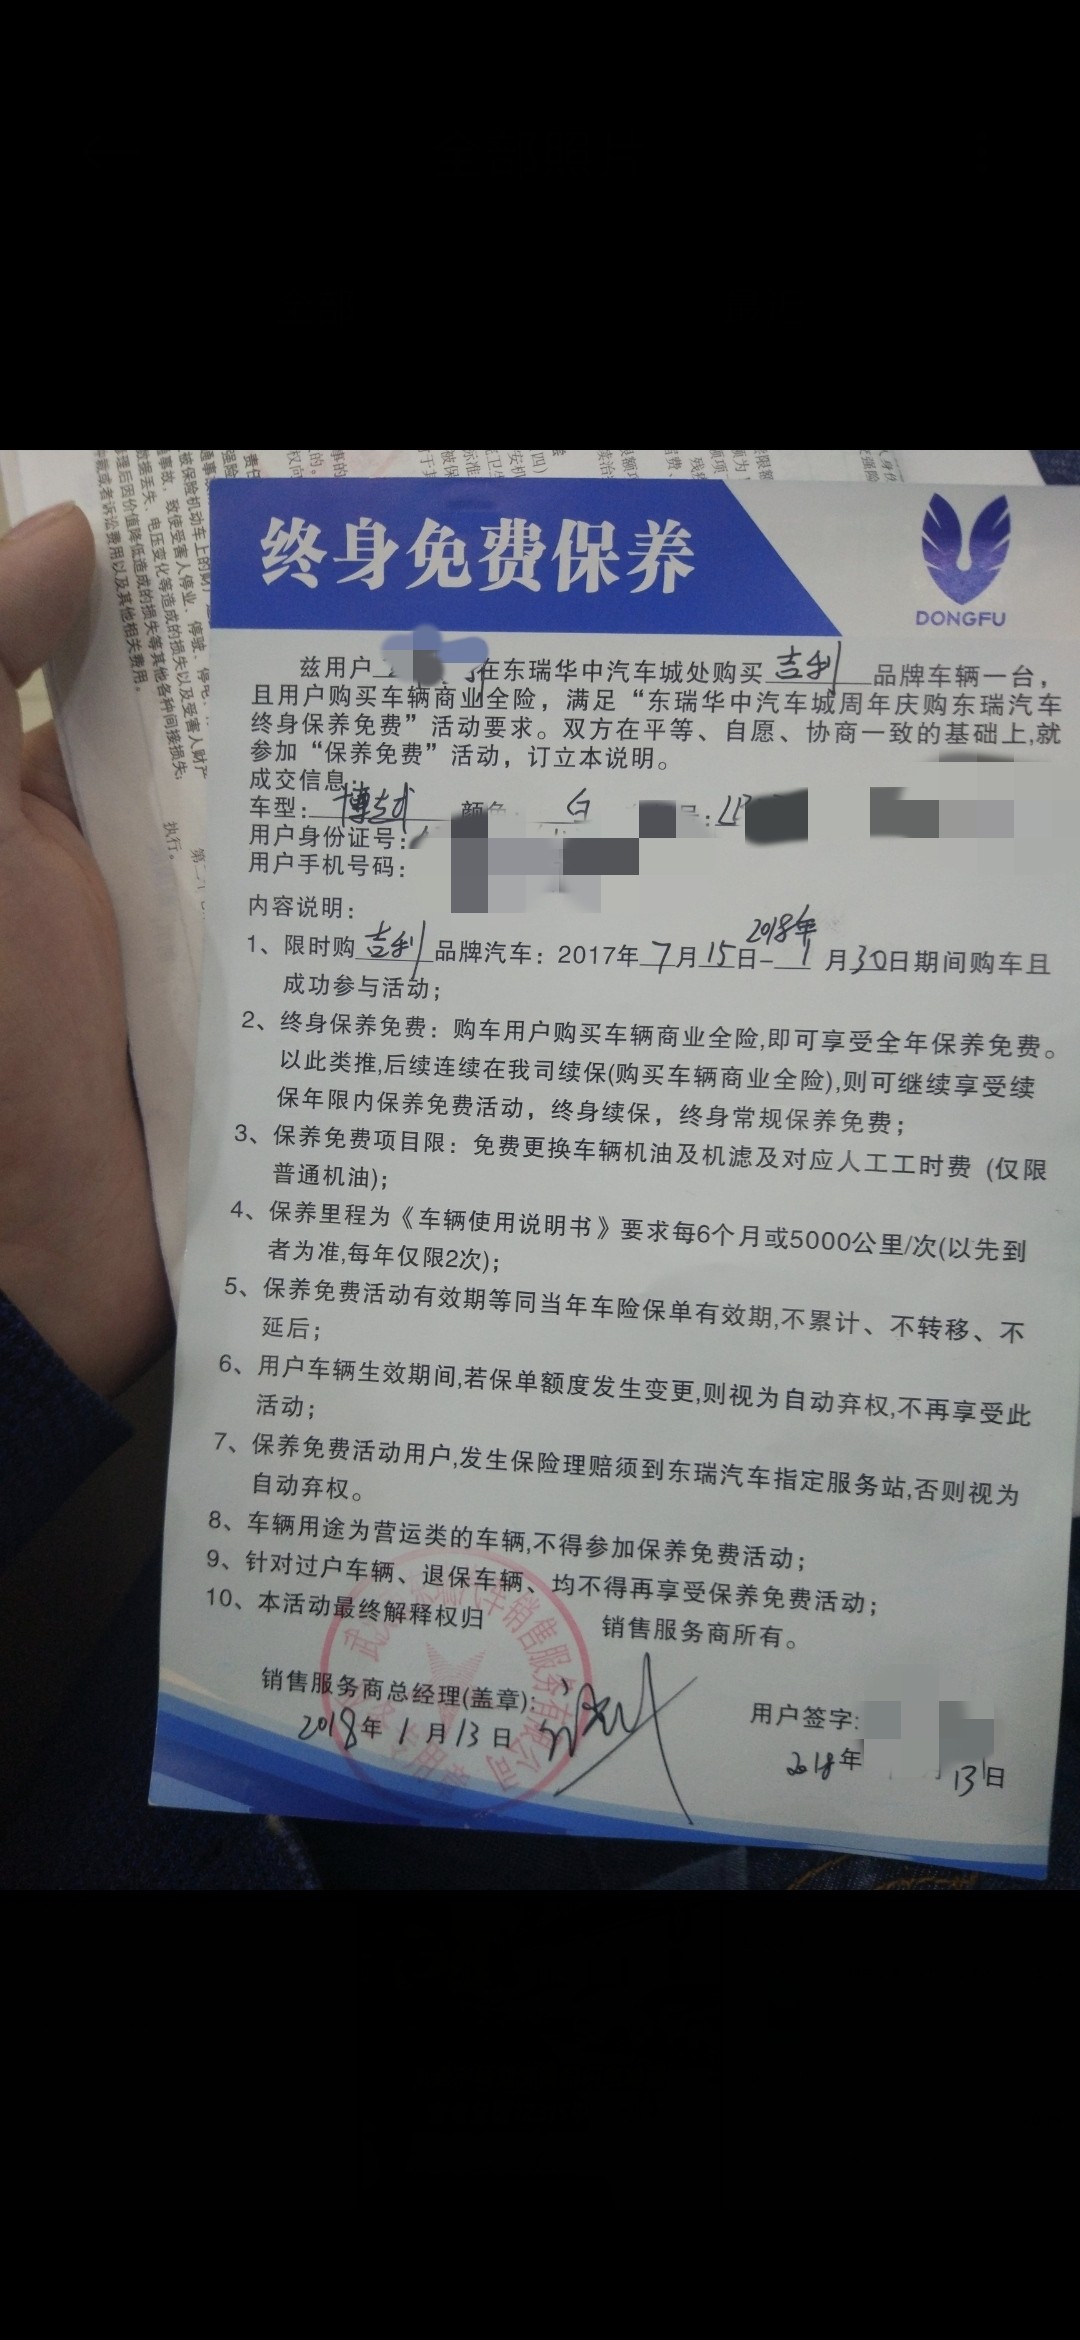 终身免费保养
DONGFU
兹用户 在东瑞华中汽车城处购买 吉利 品牌车辆一台，
且用户购买车辆商业全险，满足“东瑞华中汽车城周年庆购东瑞汽车
终身保养免费”活动要求。双方在平等、自愿、协商一致的基础上,就
参加“保养免费”活动，订立本说明。
成交信息：
车型：博越 颜色：白 号：
用户身份证号：
用户手机号码：
内容说明：
2018年
1、限时购 吉利 品牌汽车：2017年 7 月 15 日- 1 月 30 日期间购车且
成功参与活动；
2、终身保养免费：购车用户购买车辆商业全险,即可享受全年保养免费。
以此类推,后续连续在我司续保(购买车辆商业全险),则可继续享受续
保年限内保养免费活动，终身续保，终身常规保养免费；
3、保养免费项目限：免费更换车辆机油及机滤及对应人工工时费 (仅限
普通机油)；
4、保养里程为《车辆使用说明书》要求每6个月或5000公里/次(以先到
者为准,每年仅限2次)；
5、保养免费活动有效期等同当年车险保单有效期,不累计、不转移、不
延后；
6、用户车辆生效期间,若保单额度发生变更,则视为自动弃权,不再享受此
活动；
7、保养免费活动用户,发生保险理赔须到东瑞汽车指定服务站,否则视为
自动弃权。
8、车辆用途为营运类的车辆,不得参加保养免费活动；
9、针对过户车辆、退保车辆、均不得再享受保养免费活动；
10、本活动最终解释权归 销售服务商所有。
销售服务商总经理(盖章)：
2018年 1 月 13 日
用户签字：
2018年 13日
东瑞汽车销售服务有限公司